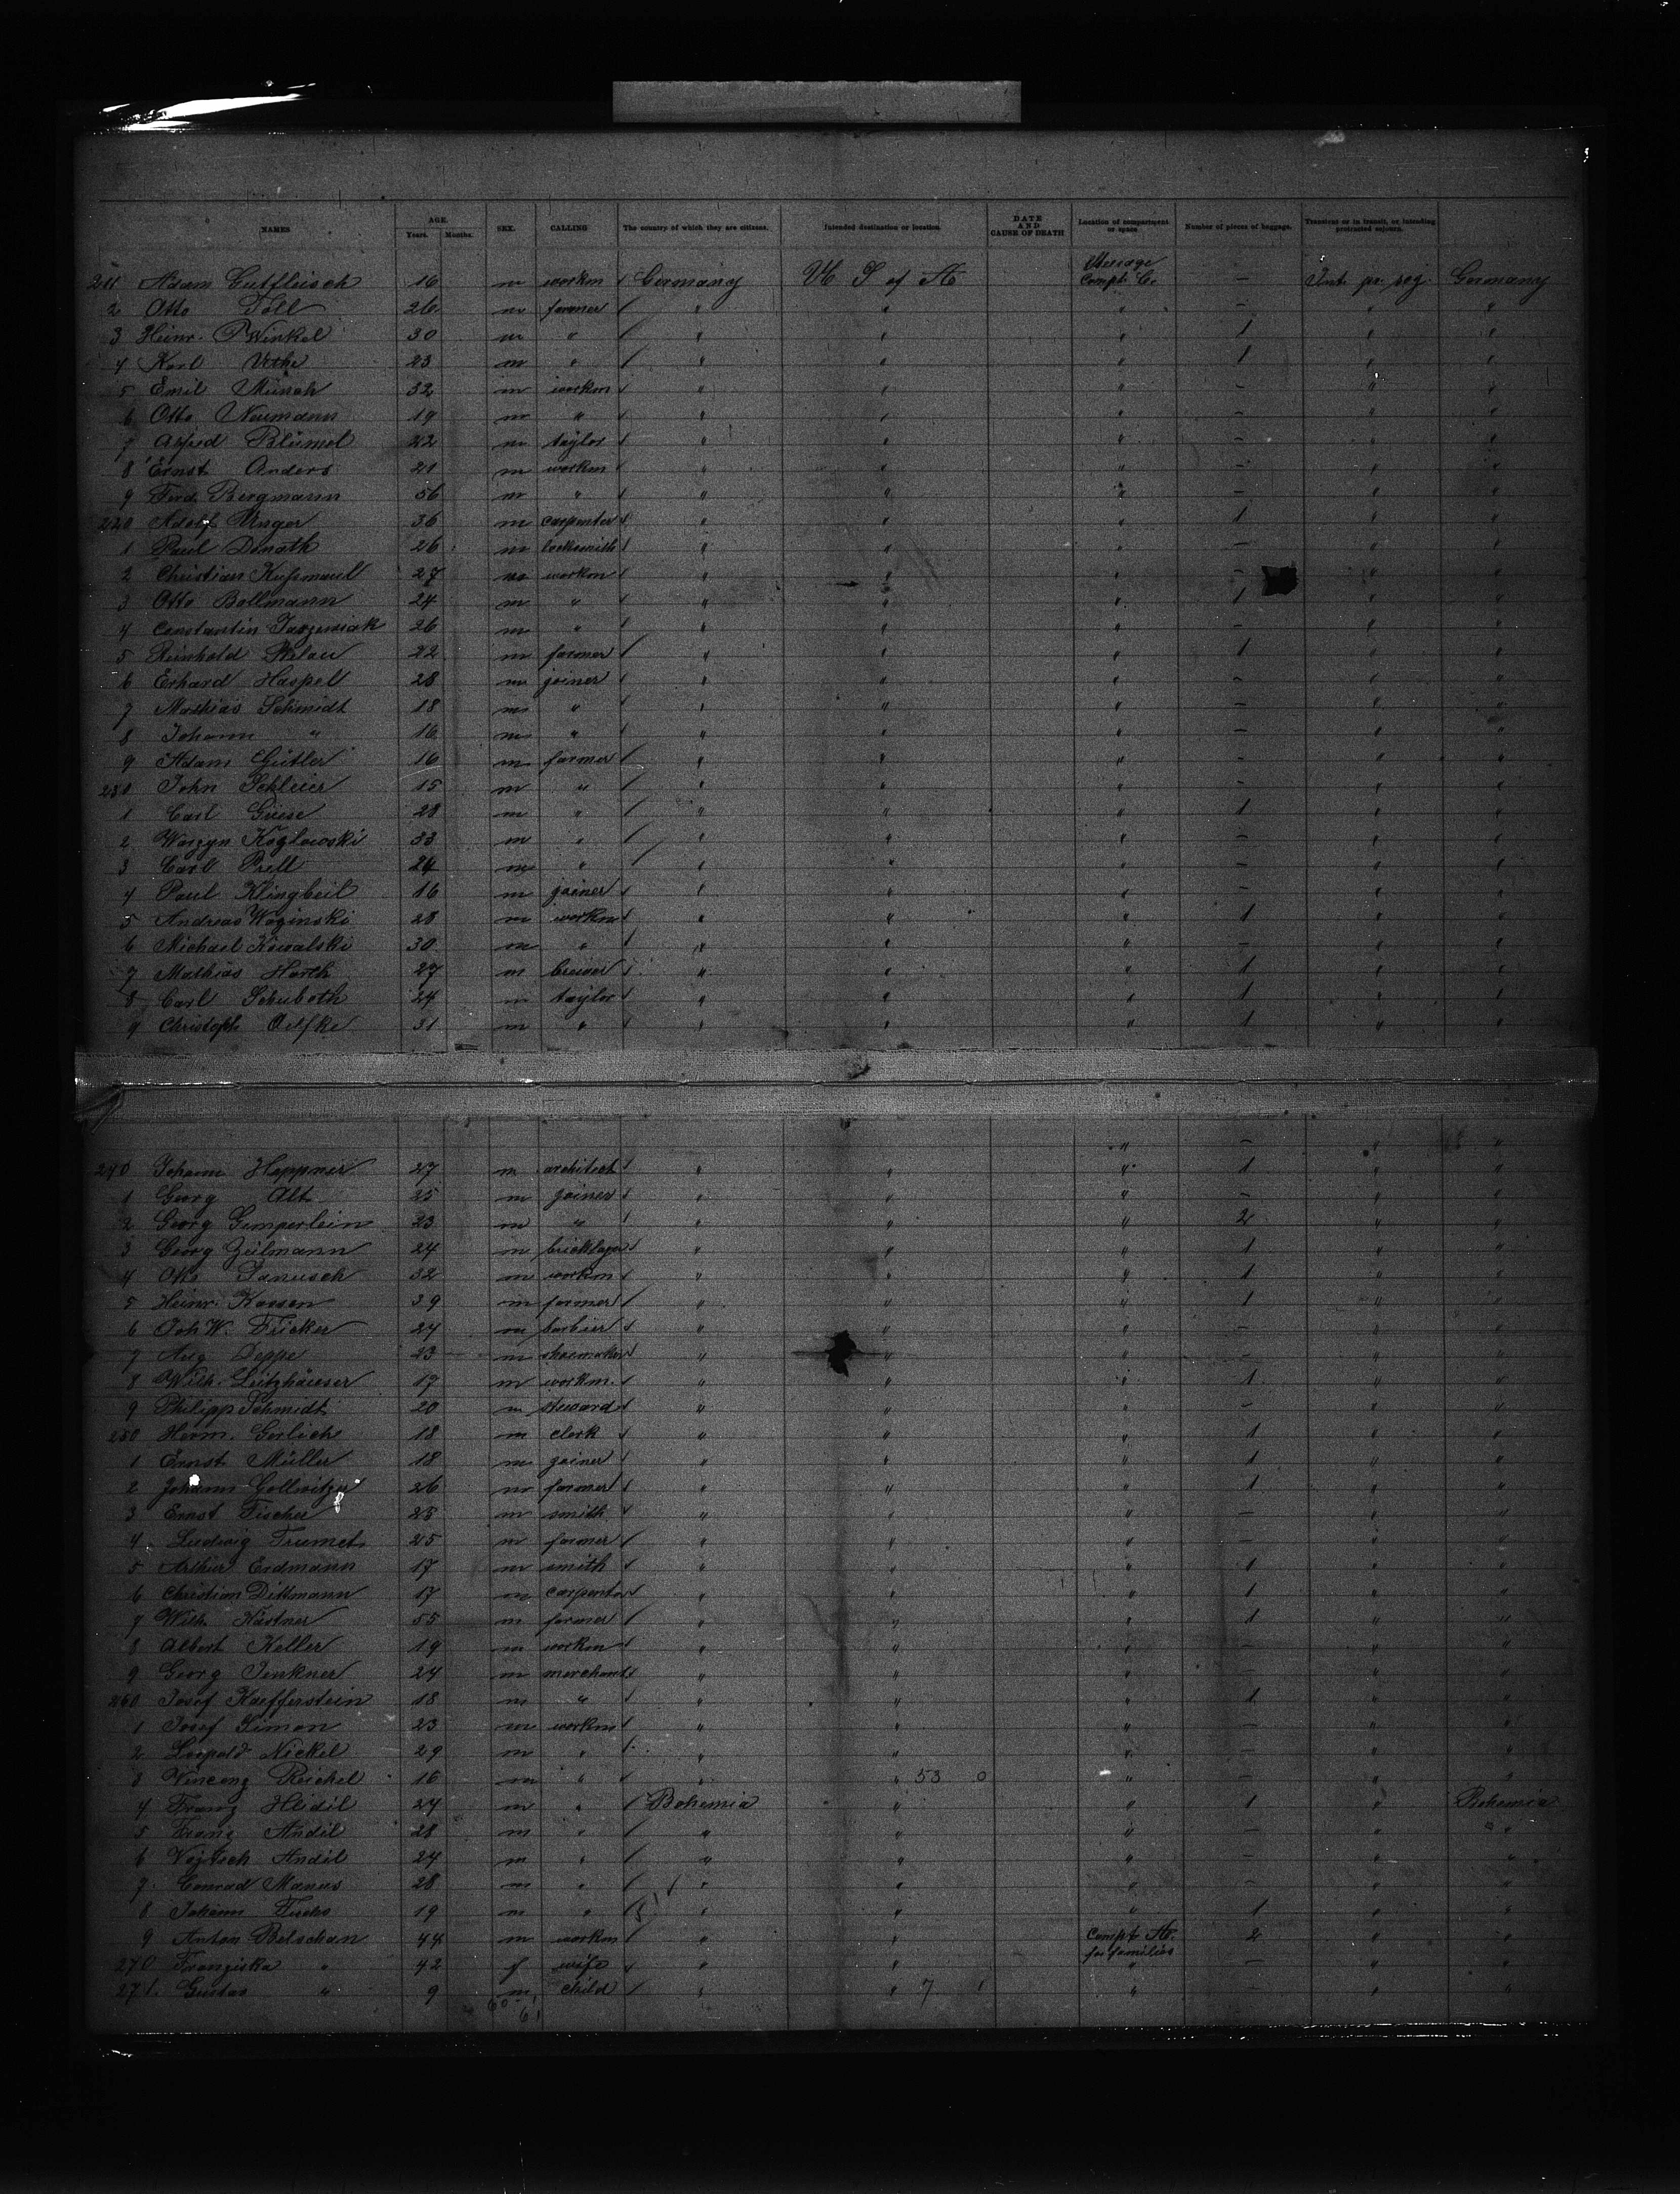 NAMES AGE. Years. Months. SEX. CALLING The country of which they are citizens. Intended destination or location. DATE AND CAUSE OF DEATH Location of compartment or space Number of pieces of baggage. Transient or in transit, or intending protracted sojourn.
211 Adam Gutfleisch 16 m workm Germany U S of A Steerage Compt. C. — Int. pr. soj. Germany
2 Otto Töll 26 m farmer " " " — " "
3 Heinr. Winkel 30 m " " " " 1 " "
4 Karl 23 m " " " " 1 " "
5 Emil Münch 32 m workm " " " — " "
6 Otto Neumann 19 m " " " " — " "
7 Alfred Blümel 22 m taylor " " " — " "
8 Ernst Anders 21 m workm " " " — " "
9 Ferd. Bergmann 56 m " " " " — " "
220 Adolf Unger 36 m carpenter " " " 1 " "
1 Paul Donath 26 m locksmith " " " — " "
2 Christian Kußmaul 27 m workm " " " — " "
3 Otto Bollmann 24 m " " " " 1 " "
4 Constantin 26 m " " " " — " "
5 Reinhold 22 m farmer " " " 1 " "
6 Erhard Haspel 28 m joiner " " " — " "
7 Mathias Schmidt 18 m " " " " — " "
8 Johann " 16 m " " " " — " "
9 Adam Gütler 16 m farmer " " " — " "
230 John Schleier 15 m " " " " — " "
1 Carl Güese 28 m " " " " 1 " "
2 Koglowski 33 m " " " " — " "
3 Carl 24 m " " " " — " "
4 Paul Klingbeil 16 m joiner " " " — " "
5 Andreas Woginski 28 m workm " " " 1 " "
6 Michael Kowalski 30 m " " " " — " "
7 Mathias Harth 27 m brewer " " " 1 " "
8 Carl Schuboth 24 m taylor " " " 1 " "
9 Christoph 31 m " " " " 1 " "
" — " "
240 Johann Heppner 27 m architect " " " 1 " "
1 Georg Alt 25 m joiner " " " — " "
2 Georg Gimperlein 23 m " " " " 2 " "
3 Georg Zeilmann 24 m bricklayer " " " 1 " "
4 Otto Janusch 32 m workm " " " 1 " "
5 Heinr. Kassen 39 m farmer " " " 1 " "
6 Joh W. Fricker 24 m barbier " " " — " "
7 Aug Deppe 23 m shoemaker " " " — " "
8 Wilh. Lützhäuser 17 m workm. " " " 1 " "
9 Philipp Schmidt 20 m steward " " " — " "
250 Herm. Gerlich 18 m clerk " " " 1 " "
1 Ernst Müller 18 m joiner " " " 1 " "
2 Johann Gollwitzer 26 m farmer " " " 1 " "
3 Ernst Fischer 25 m smith " " " — " "
4 Ludwig Trumet 25 m farmer " " " — " "
5 Arthur Erdmann 17 m smith " " " 1 " "
6 Christian Dittmann 17 m carpenter " " " 1 " "
7 Wilh. Kästner 55 m farmer " " " 1 " "
8 Albert Keller 19 m workm " " " — " "
9 Georg Jenkner 24 m merchant " " " — " "
260 Josef Kaefferstein 18 m " " " " 1 " "
1 Josef Simon 23 m workm " " " — " "
2 Leopold Nickel 29 m " " " " — " "
3 Vincenz Reichel 16 m " " " 53 0 " — " "
4 Franz Heidil 24 m " Bohemia " " 1 " Bohemia
5 Franz Andil 28 m " " " " — " "
6 Vojtech Andil 24 m " " " " — " "
7 Conrad Manus 28 m " " " " — " "
8 Johann Fuchs 19 m " " " " 1 " "
9 Anton Belschan 44 m workm " " Compt. A. for families 2 " "
270 Franziska " 42 f wife " " " — " "
271. Gustav " 9 m child " " 7 1 " — " "
60 1
61